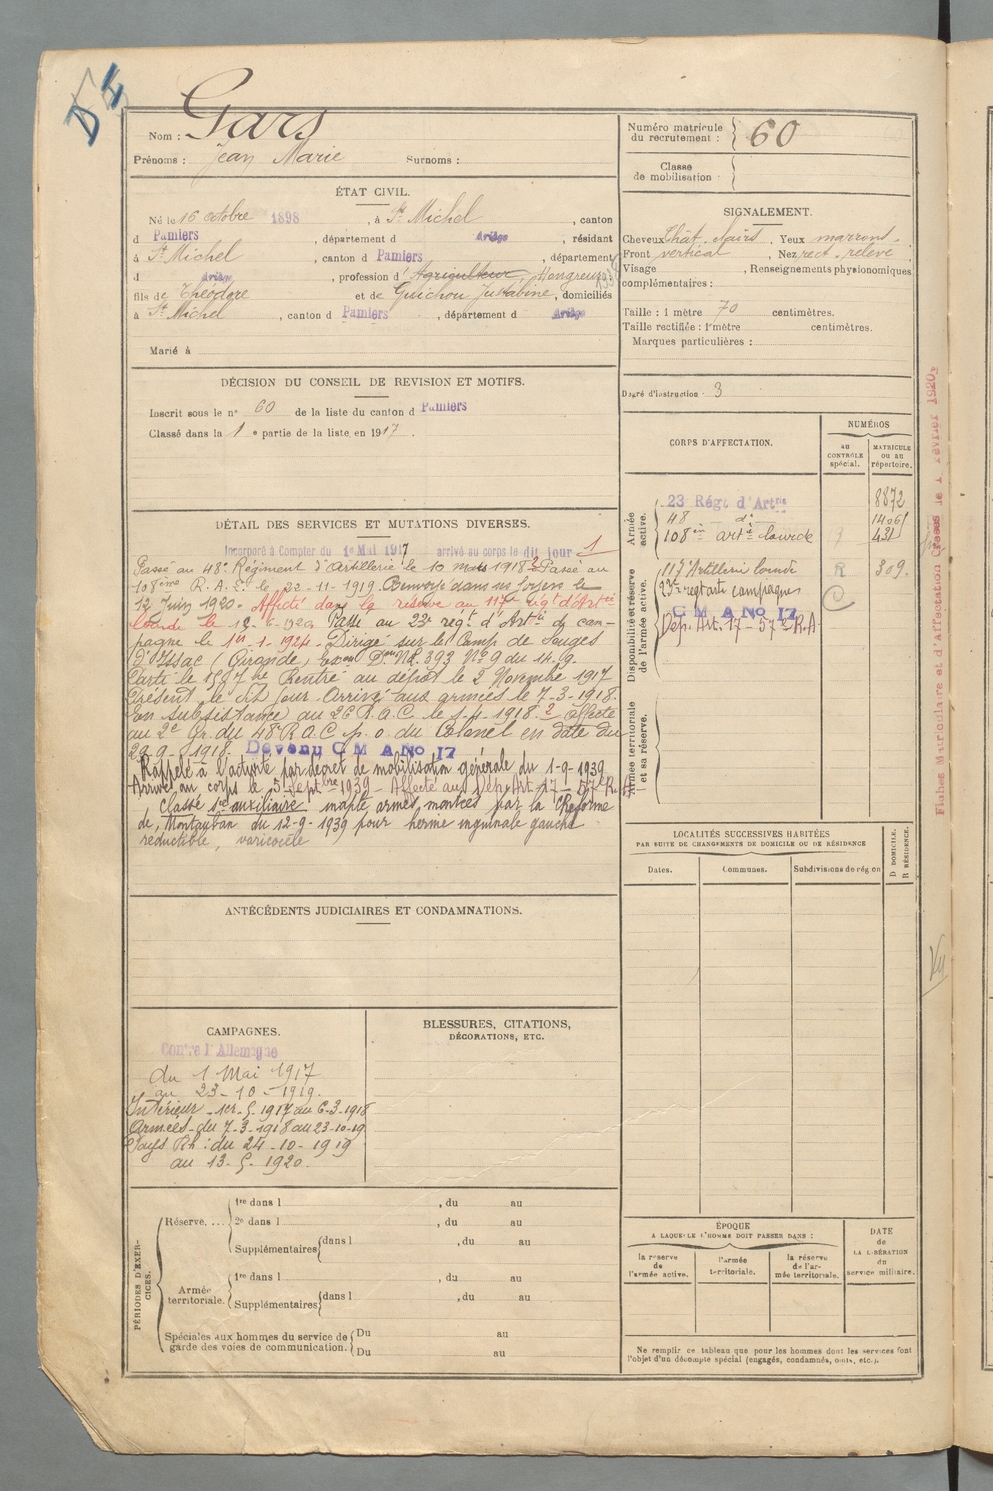 Nom : Gars
Prénoms : Jean Marie Surnoms :
Numéro matricule du recrutement : 60
Classe de mobilisation :
ÉTAT CIVIL.
Né le 16 octobre 1898, à St Michel, canton
d Pamiers, département d Ariège, résidant
à St Michel, canton d Pamiers, département
d Ariège, profession d'Agriculteur, Hongreur
fils de Théodore et de Guichou Justabine, domiciliés
à St Michel, canton d Pamiers, département d Ariège
Marié à
SIGNALEMENT.
Cheveux Chât. clairs, Yeux marrons.
Front vertical, Nez rect. relevé
Visage , Renseignements physionomiques
complémentaires :
Taille : 1 mètre 70 centimètres.
Taille rectifiée : 1 mètre centimètres.
Marques particulières :
Degré d'instruction : 3
DÉCISION DU CONSEIL DE REVISION ET MOTIFS.
Inscrit sous le n° 60 de la liste du canton d Pamiers
Classé dans la 1 e partie de la liste en 1917.
DÉTAIL DES SERVICES ET MUTATIONS DIVERSES.
Incorporé à Compter du 1e Mai 1917 arrivé au corps le dit jour 1
Passé au 48e Régiment d'Artillerie le 10 mars 1918 2 Passé au
108ème R.A.L. le 22-11-1919. Renvoyé dans ses foyers le
12 Juin 1920. Affecté dans la réserve au 117e régt d'Artie
lourde le Passé au 23e régt d'Artie de cam-
pagne le 1er 1. 1924. Dirigé sur le Camp de Souges
D'Issac (Gironde) N° 393 N° 9 du 14-9.
Parti le Rentré au dépôt le 2 Novembre 1917
Présent le dit jour Arrivé aux armées le 7-3-1918.
En subsistance au 26 R.A.C. le 1-4-1918. 2 affecté
au 2e Gr. du 48 R.A.C. p. o. du Colonel en date du
29-9-1918. Devenu C M A No 17
Rappelé à l'activité par décret de mobilisation générale du 1-9-1939
Arrivé au corps le 5 septbre 1939 - Affecté au Dép. Art. 17 - 57e R.A
Classé sce auxiliaire inapte armes montées par la C Réforme
de Montauban du 12-9-1939 pour hernie inguinale gauche
réductible, varicocèle
CORPS D'AFFECTATION.
NUMÉROS
AU CONTRÔLE spécial.
MATRICULE OU AU répertoire.
Armée active.
23 Régt d'Artrie 8872
48 d°
108e artie lourde 431
Disponibilité et réserve de l'armée active.
117 Artillerie lourde R 309.
23e regt artie campagne
C M A No 17
Dép. Art. 17 - 57e R.A
Armée territoriale et sa réserve.
LOCALITÉS SUCCESSIVES HABITÉES
PAR SUITE DE CHANGEMENTS DE DOMICILE OU DE RÉSIDENCE
Dates. Communes. Subdivisions de région
D DOMICILE.
R RÉSIDENCE.
ANTÉCÉDENTS JUDICIAIRES ET CONDAMNATIONS.
CAMPAGNES.
Contre l'Allemagne
du 1 Mai 1917
au 23-10-1919.
Intérieur - 1er-5-1917 au 6-3-1918
Armées - du 7-3-1918 au 23-10-19
Pays Rh : du 24-10-1919
au 13-5-1920.
BLESSURES, CITATIONS,
DÉCORATIONS, ETC.
PÉRIODES D'EXERCICES.
Réserve. ... 1re dans l , du au
2e dans l , du au
Supplémentaires dans l , du au
Armée territoriale. 1re dans l , du au
Supplémentaires dans l , du au
Spéciales aux hommes du service de garde des voies de communication.
Du au
Du au
ÉPOQUE
A LAQUELLE L'HOMME DOIT PASSER DANS :
la réserve de l'armée active.
l'armée territoriale.
la réserve de l'armée territoriale.
DATE de LA LIBÉRATION du service militaire.
Ne remplir ce tableau que pour les hommes dont les services font
l'objet d'un décompte spécial (engagés, condamnés, omis, etc.).